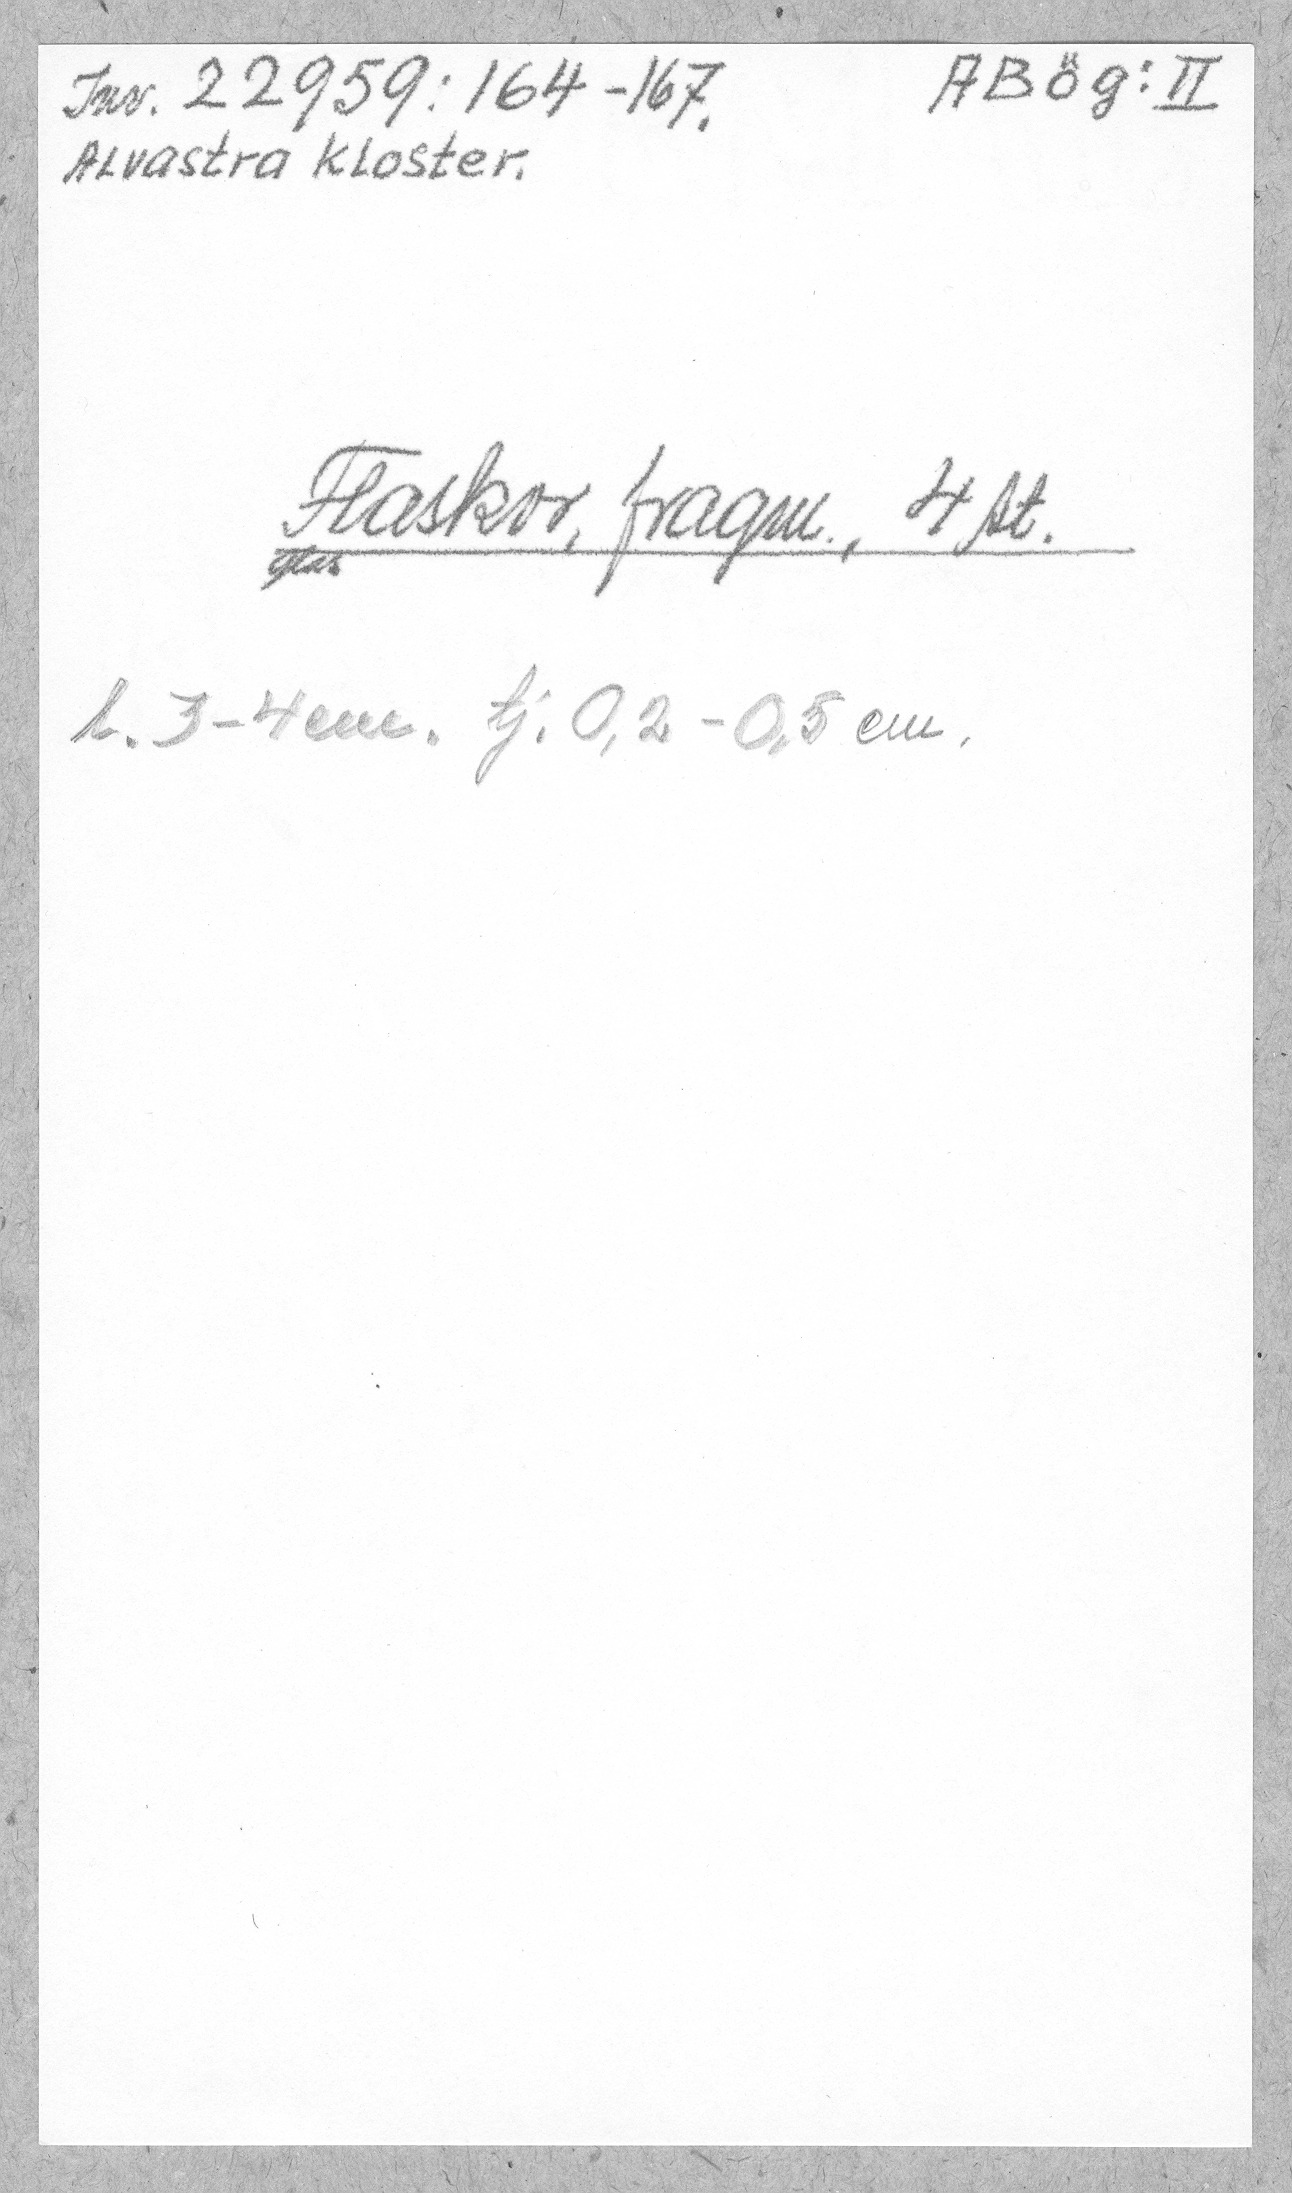 Inv. 22959:164-167. ABög:II
Alvastra kloster.
Flaskor, fragm., 4 st.
glas
L. 3-4 cm. tj. 0,2-0,5 cm.